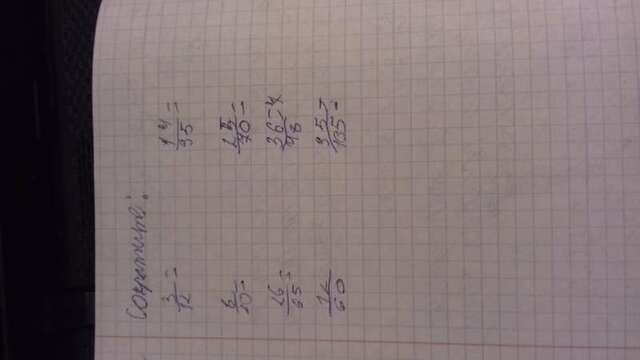 Сократите:
3/12 = 14/35 =
6/20 = 25/70 =
26/65 = 36/48 =
12/60 95/135 =